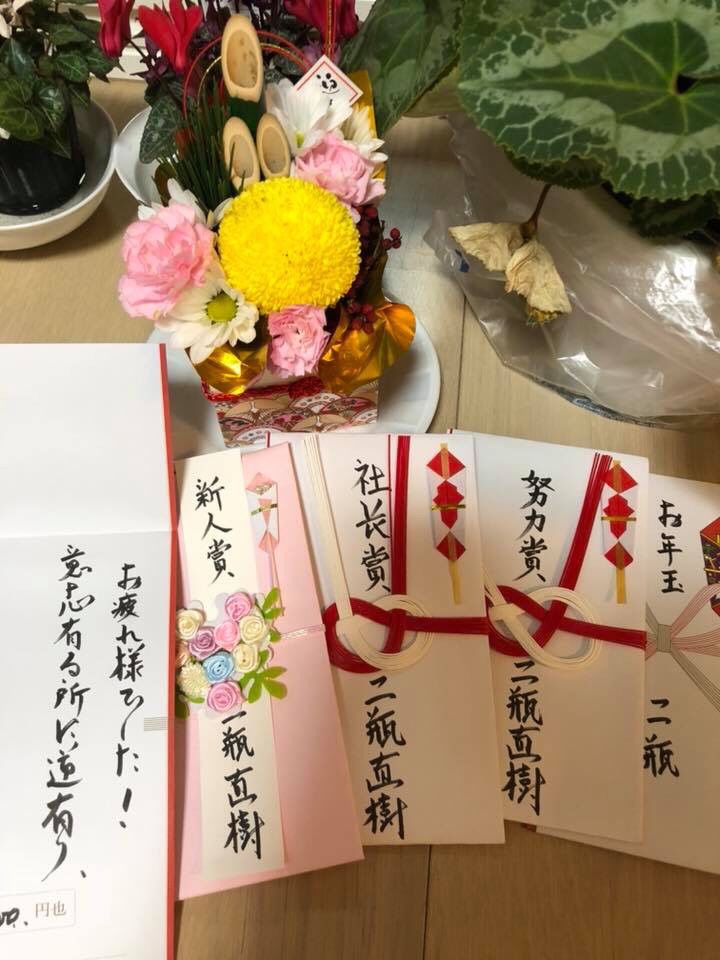 お疲れ様でした！
意志有る所に道有り、
円也
新人賞、
二瓶直樹
社长賞、
二瓶直樹
努力賞、
二瓶直樹
お年玉
二瓶